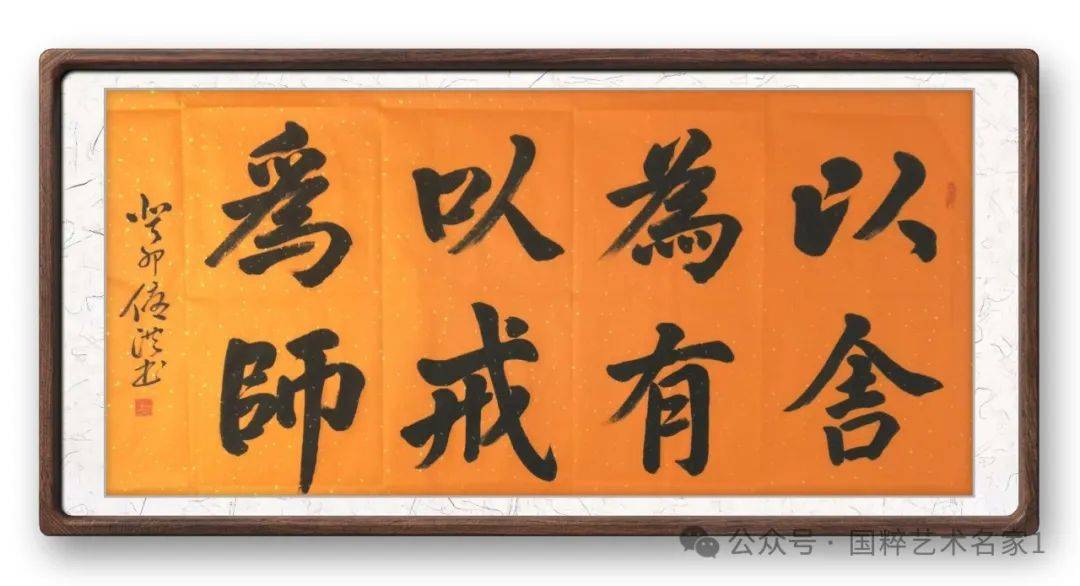 以舍
為有
以戒
爲師
癸卯俊洪书
公众号·国粹艺术名家1